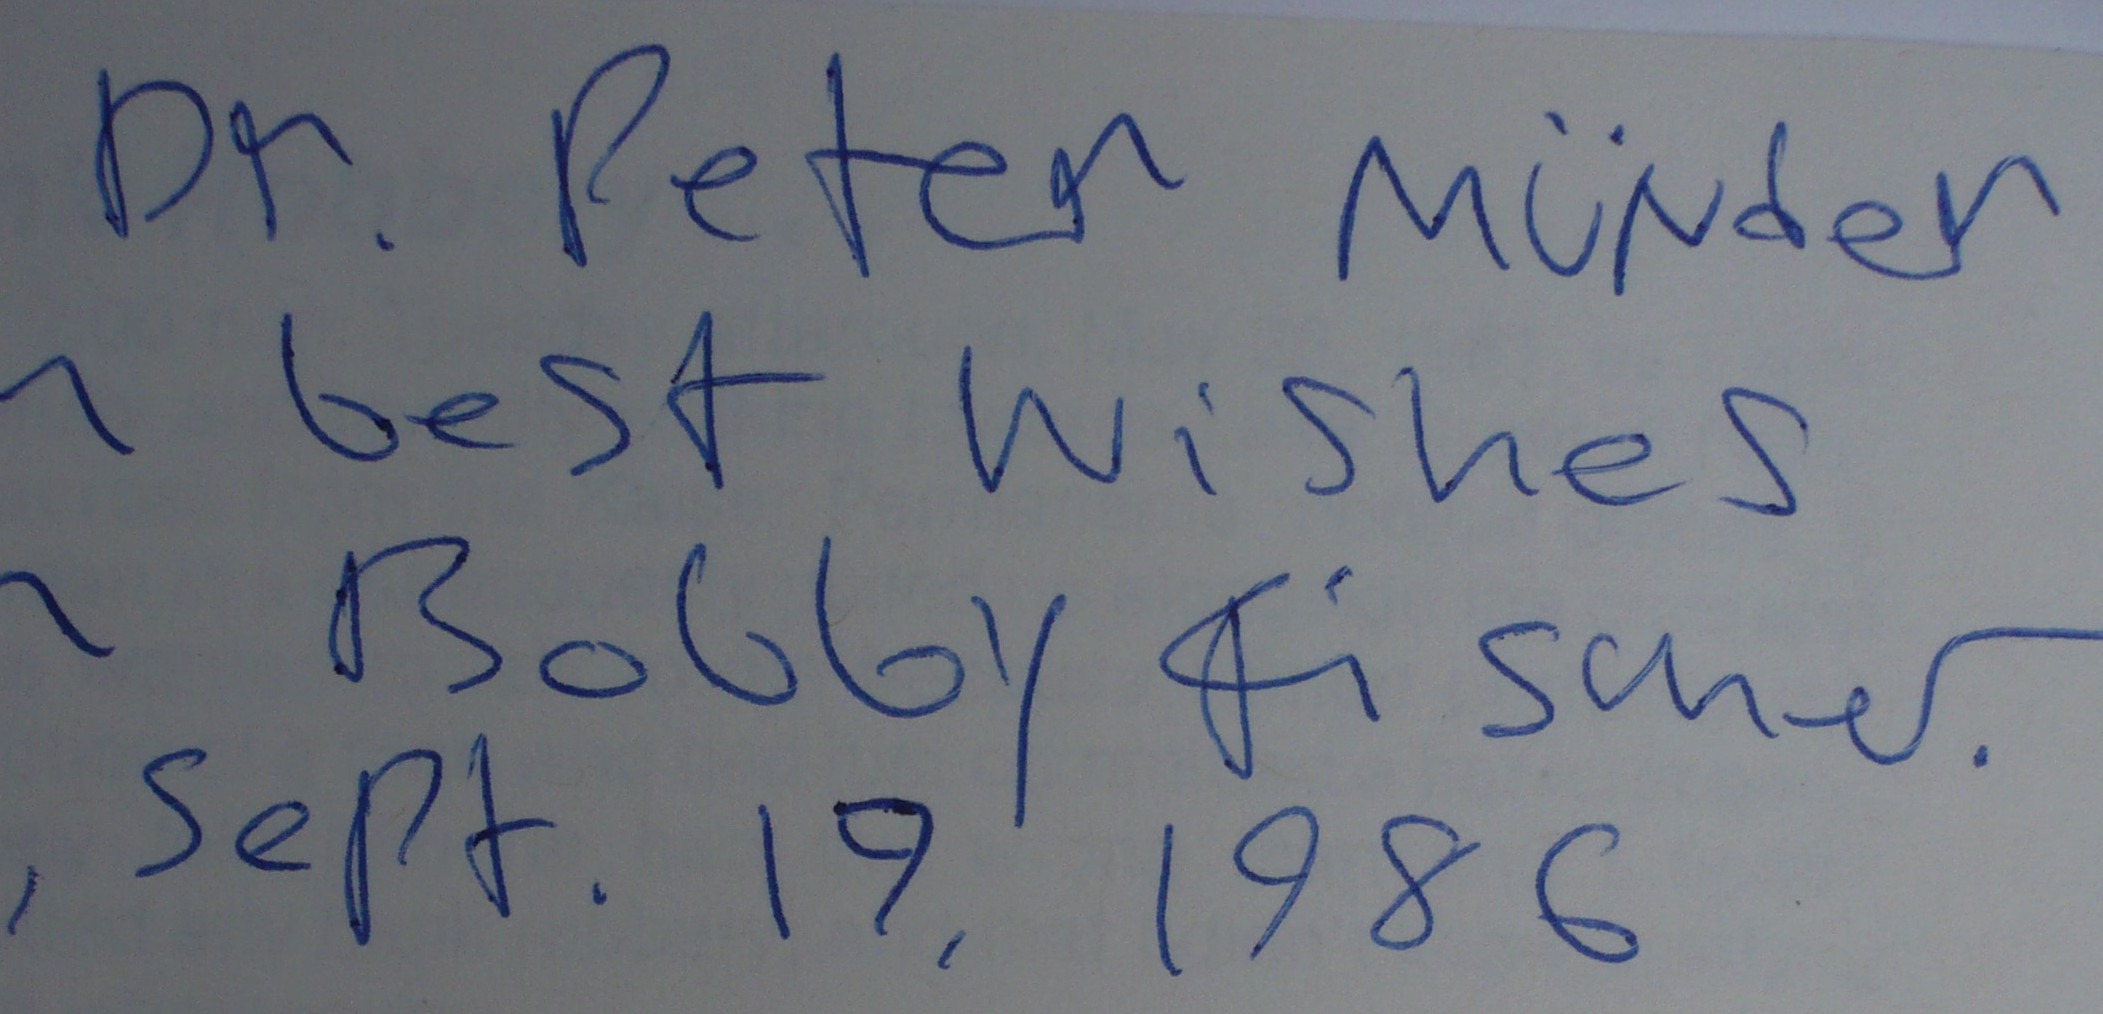 Dr. Peter Münder
best wishes
Bobby Fischer.
, Sept. 19, 1986